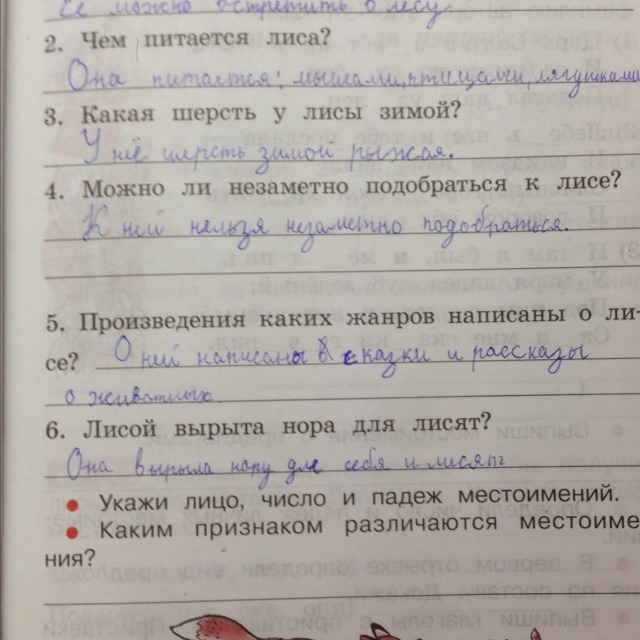 Её можно встретить в лесу.
2. Чем питается лиса?
Она питается: мышами, птицами, лягушками
3. Какая шерсть у лисы зимой?
У неё шерсть зимой рыжая.
4. Можно ли незаметно подобраться к лисе?
К ней нельзя незаметно подобраться.
5. Произведения каких жанров написаны о ли-
се? О ней написаны сказки и рассказы
о животных
6. Лисой вырыта нора для лисят?
Она вырыла нору для себя и лисят
• Укажи лицо, число и падеж местоимений.
• Каким признаком различаются местоиме-
ния?